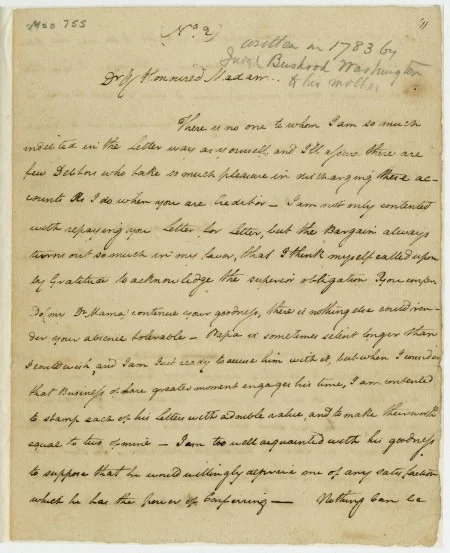 Mss 755
(No 2)
11
written in 1783 by
Judge Bushrod Washington
to his mother
Dr & Honoured Madam..
There is no one to whom I am so much
indebted in the Letter way as yourself, and I'll assure there are
few Debtors who take so much pleasure in discharging these ac-
counts As I do when you are Creditor - I am not only contented
with repaying you Letter for Letter, but the Bargain always
turns out so much in my favor, that I think myself called upon
by Gratitude to acknowledge the superior obligation you confer
Do (my Dr Mama) continue your goodness, there is nothing else could ren-
der your absence tolerable - Papa is sometimes silent longer than
I could wish and I am Just ready to accuse him with it, but when I consider
that Business of far greater moment engages his time, I am contented
to stamp each of his letters with a double value, and to make their worth
equal to two of mine - I am too well acquainted with his goodness
to suppose that he would willingly deprive one of any satisfaction
which he has the power of Conferring — Nothing Can be